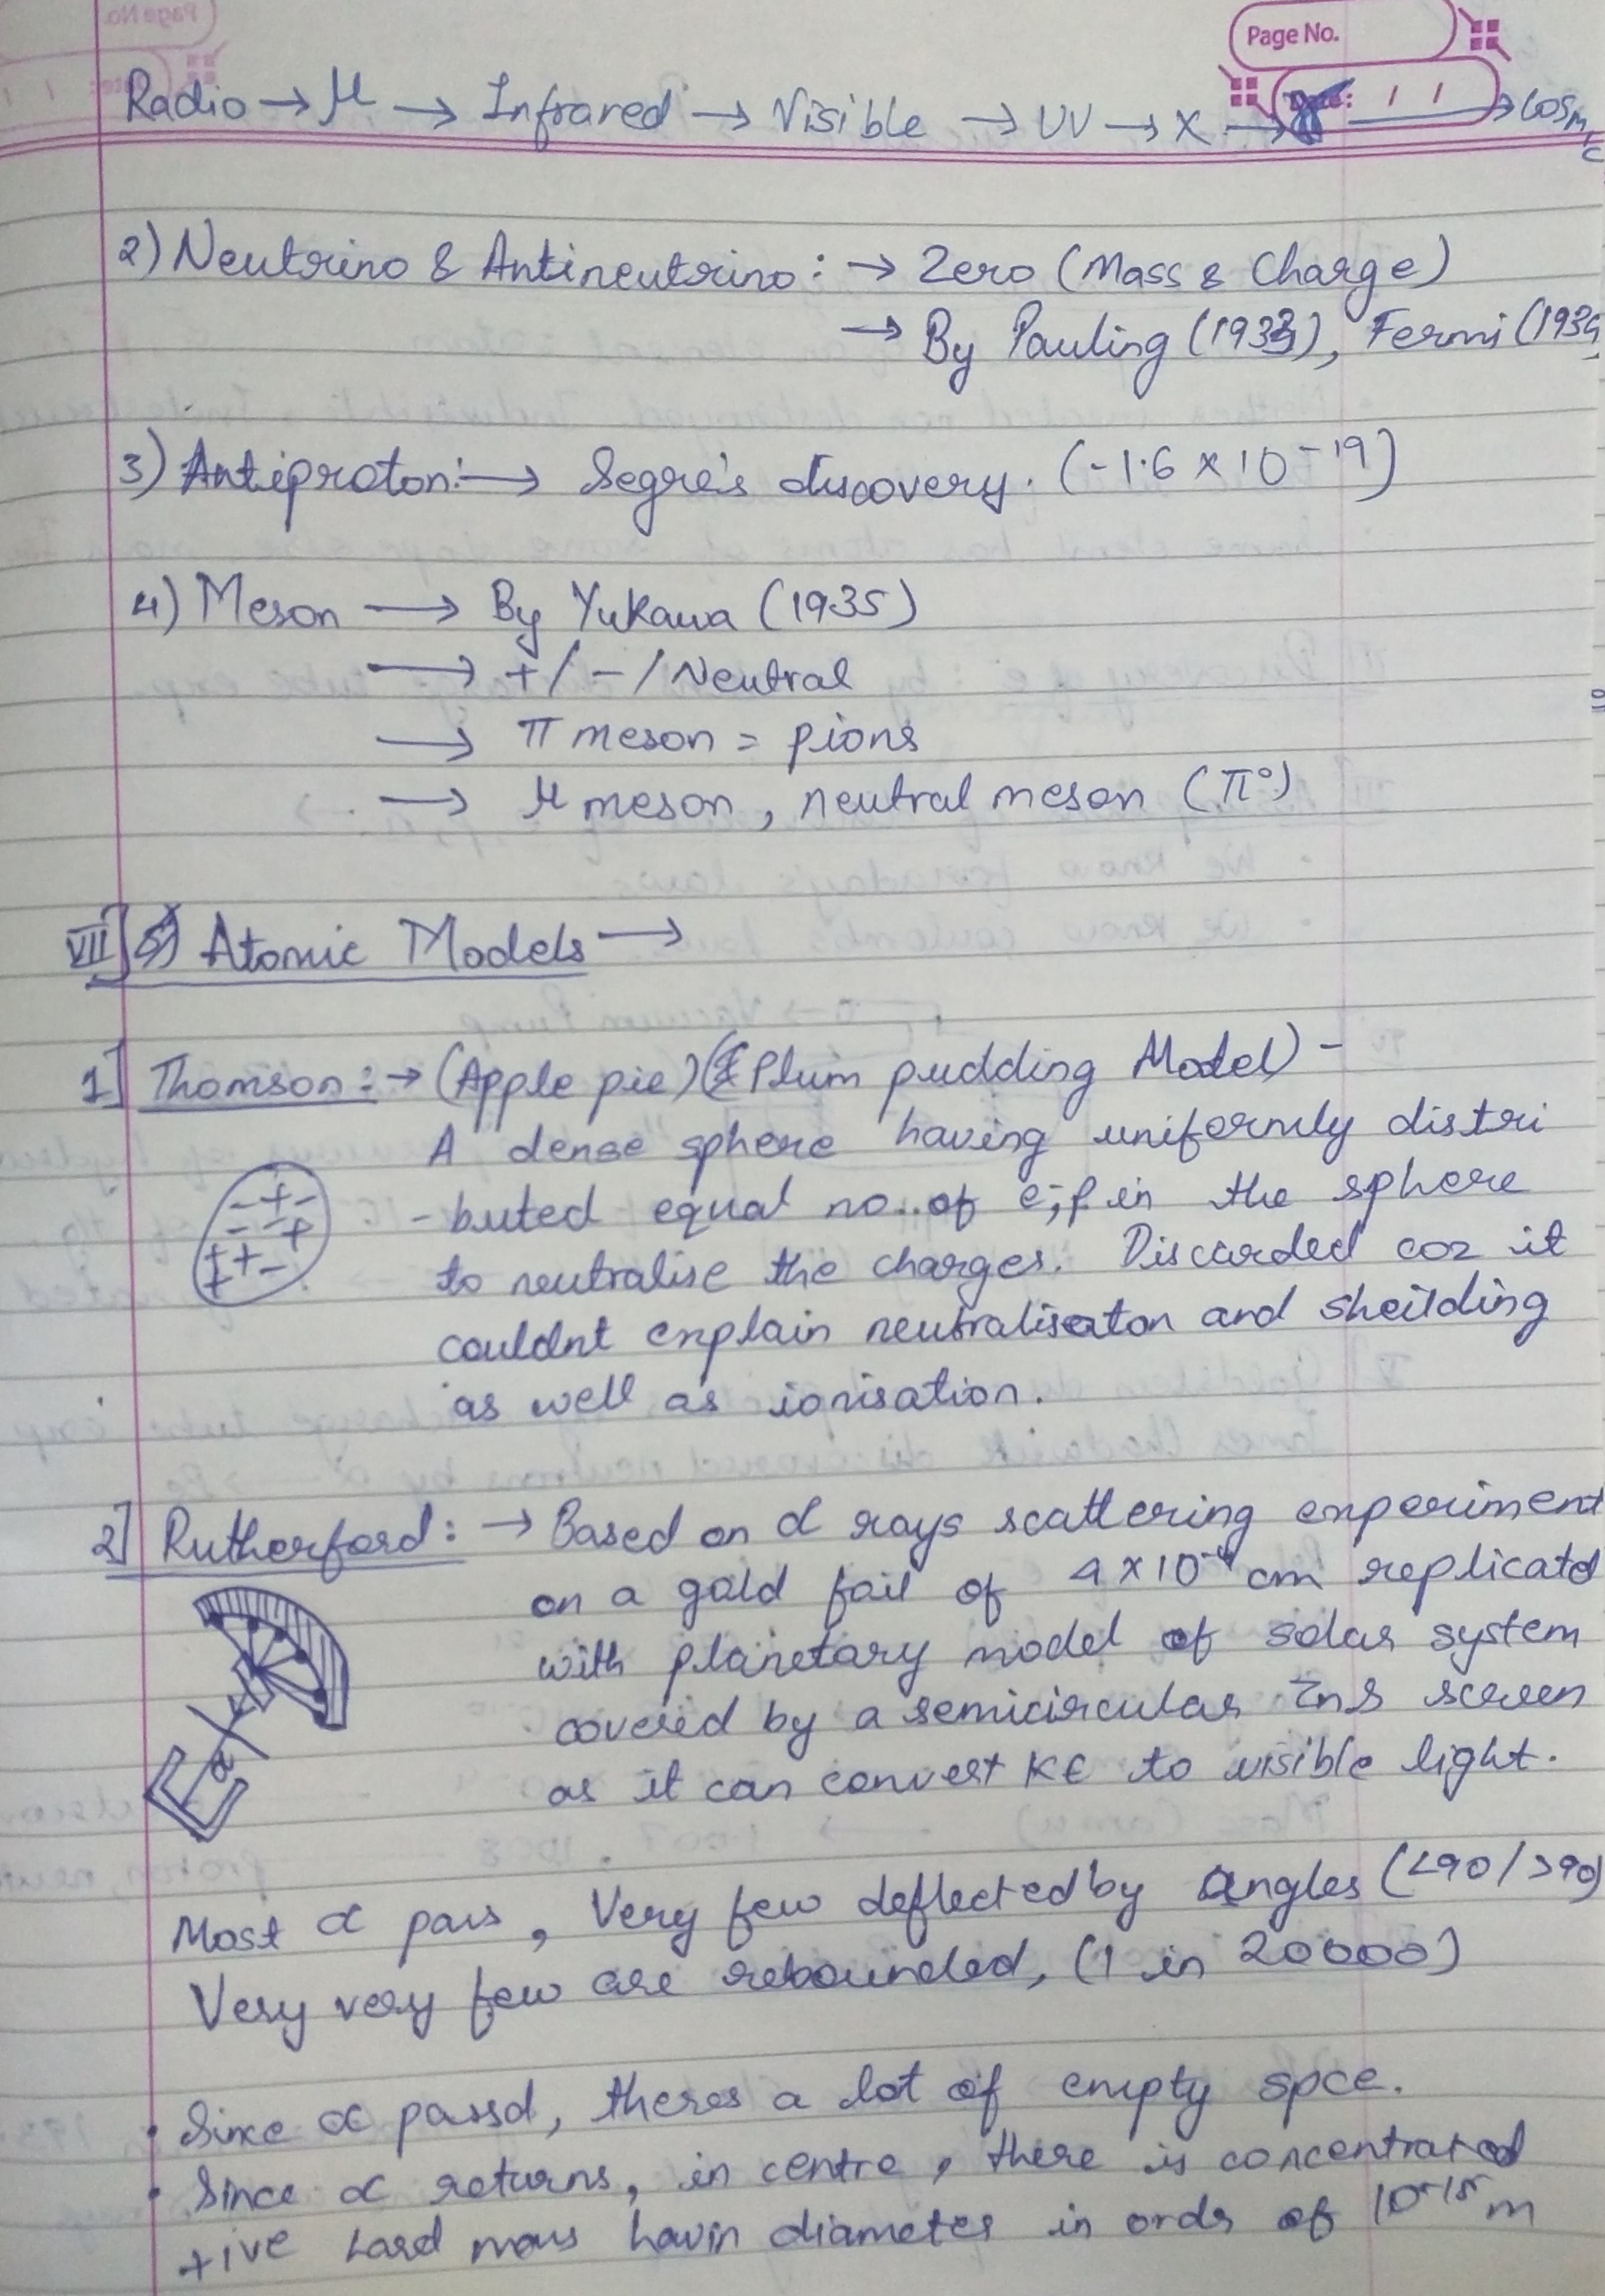 Page No.
Radio → μ → Infrared → Visible → UV → X → γ → Cosmic
2) Neutrino & Antineutrino : → Zero (Mass & Charge)
→ By Pauling (1933), Fermi (1934
3) Antiproton :→ Segre's discovery. (-1.6 x 10⁻¹⁹)
4) Meson → By Yukawa (1935)
→ + / - / Neutral
→ π meson = pions
→ μ meson, neutral meson (π°)
VII] Atomic Models →
1] Thomson : → (Apple pie) (Plum pudding Model) -
A dense sphere having uniformly distri
- buted equal no. of e⁻, p in the sphere
to neutralise the charges. Discarded coz it
couldnt explain neutralisaton and sheilding
as well as ionisation.
- + -
- - +
+ + -
+
2] Rutherford : → Based on α rays scattering experiment
on a gold foil of 4 x 10⁻⁴ cm replicatd
with planetary model of solar system
covered by a semicircular ZnS screen
as it can convert KE to visible light.
α
Most α pass, Very few deflected by angles (<90/>90)
Very very few are rebounded, (1 in 20000)
• Since α passd, theres a lot of empty spce.
• Since α returns, in centre, there is concentrated
+ive hard mass havin diameter in ordr of 10⁻¹⁵ m